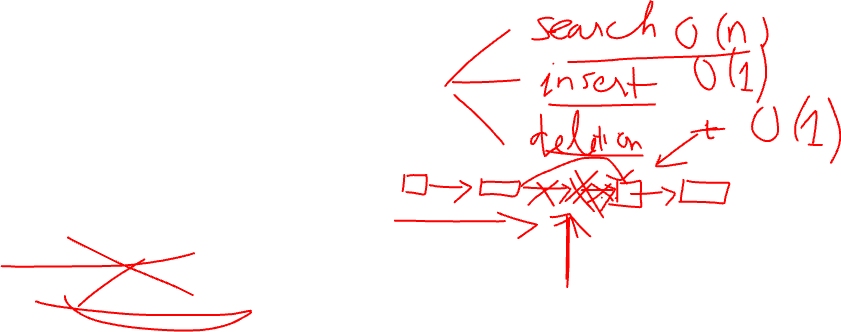 search O(n)
insert O(1)
deletion O(1)